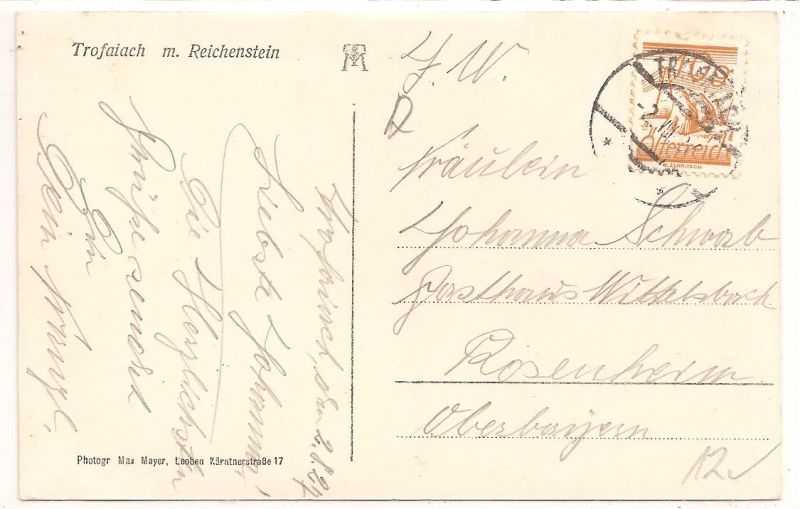 Trofaiach m. Reichenstein
Trofaiach, den 2. 8. 27
Liebste Johanna!
Die Herzlichsten
Grüße sendet
Dein
Photogr Max Mayer, Leoben Kärntnerstraße 17
100
Österreich
Fräulein
Johanna Schwarb
Gasthaus Wittelsbach
Rosenheim
Oberbayern